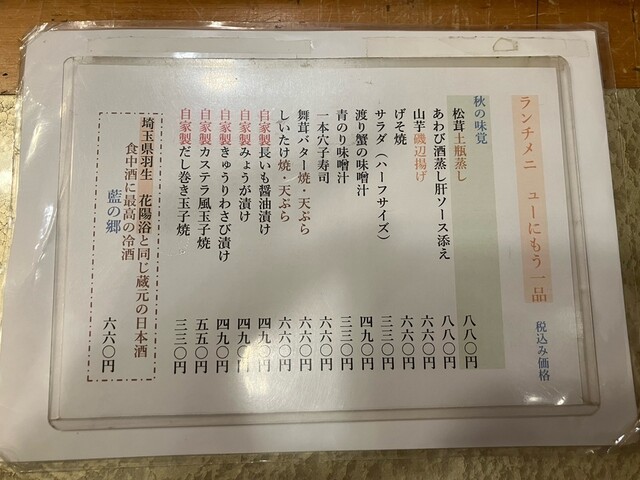 ランチメニューにもう一品
税込み価格
秋の味覚
松茸土瓶蒸し 八八〇円
あわび酒蒸し肝ソース添え 八八〇円
山芋磯辺揚げ 六六〇円
げそ焼 六六〇円
サラダ（ハーフサイズ） 三三〇円
渡り蟹の味噌汁 四九〇円
青のり味噌汁 三三〇円
一本穴子寿司 六六〇円
舞茸バター焼・天ぷら 六六〇円
しいたけ焼・天ぷら 六六〇円
自家製長いも醤油漬け 四九〇円
自家製みょうが漬け 四九〇円
自家製きゅうりわさび漬け 四九〇円
自家製カステラ風玉子焼 五五〇円
自家製だし巻き玉子焼 三三〇円
埼玉県羽生 花陽浴と同じ蔵元の日本酒
食中酒に最高の冷酒
藍の郷 六六〇円